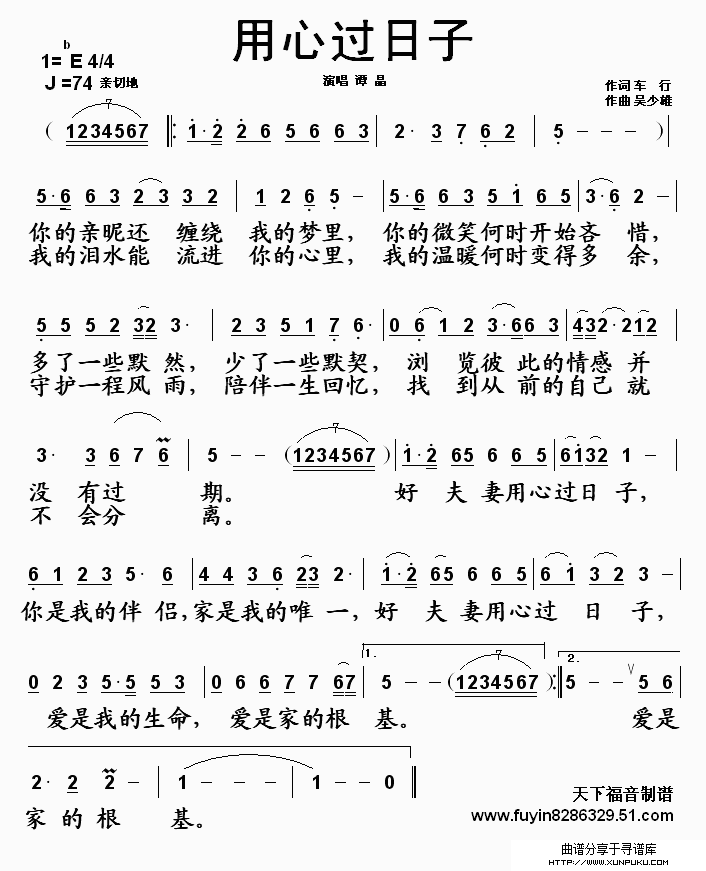 用心过日子
1= bE 4/4
J =74 亲切地
演唱 谭 晶
作词 车 行
作曲 吴少雄
( 1234567 ‖: 1· 2 2 6 5 6 6 3 | 2· 3 7 6 2 | 5 - - - )|
5·6 6 3 2 3 3 2 | 1 2 6 5 - | 5·6 6 3 5 1 6 5 | 3·6 2 -
你的亲昵还 缠绕 我的梦里, 你的微笑何时开始吝 惜,
我的泪水能 流进 你的心里, 我的温暖何时变得多 余,
5 5 5 2 32 3· | 2 3 5 1 7 6· | 0 6 1 2 3·6 6 3 | 4 3 3 2·2 1 2
多了一些默 然, 少了一些默契, 浏 览彼 此的情感 并
守护一程风 雨, 陪伴一生回忆, 找 到从 前的自己 就
3· 3 6 7 6 | 5 - - (1234567 | 1·2 65 6 6 5 | 6132 1 - |
没 有过 期。 好 夫 妻用心过日 子,
不 会分 离。
6 1 2 3 5· 6 | 4 4 3 6 23 2· | 1·2 65 6 6 5 | 6 1 3 2 3 |
你是我的伴 侣,家是我的唯 一, 好 夫 妻用心过 日 子,
1. 2.
0 2 3 5·5 5 3 | 0 6 6 7 7 67 | 5 - - (1234567 :‖ 5 - - ∨ 5 6
爱是我的生命, 爱是家的根 基。 爱是
2· 2 2 - | 1 - - - | 1 - - 0 ‖
家 的 根 基。
天下福音制谱
www.fuyin8286329.51.com
曲谱分享于寻谱库
HTTP://WWW.XUNPUKU.COM